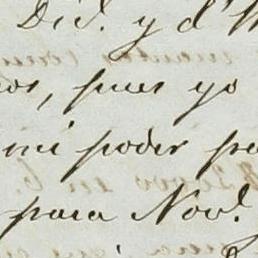 Dic.e y d'
os, pues yo
mi poder pa
para Nov.e